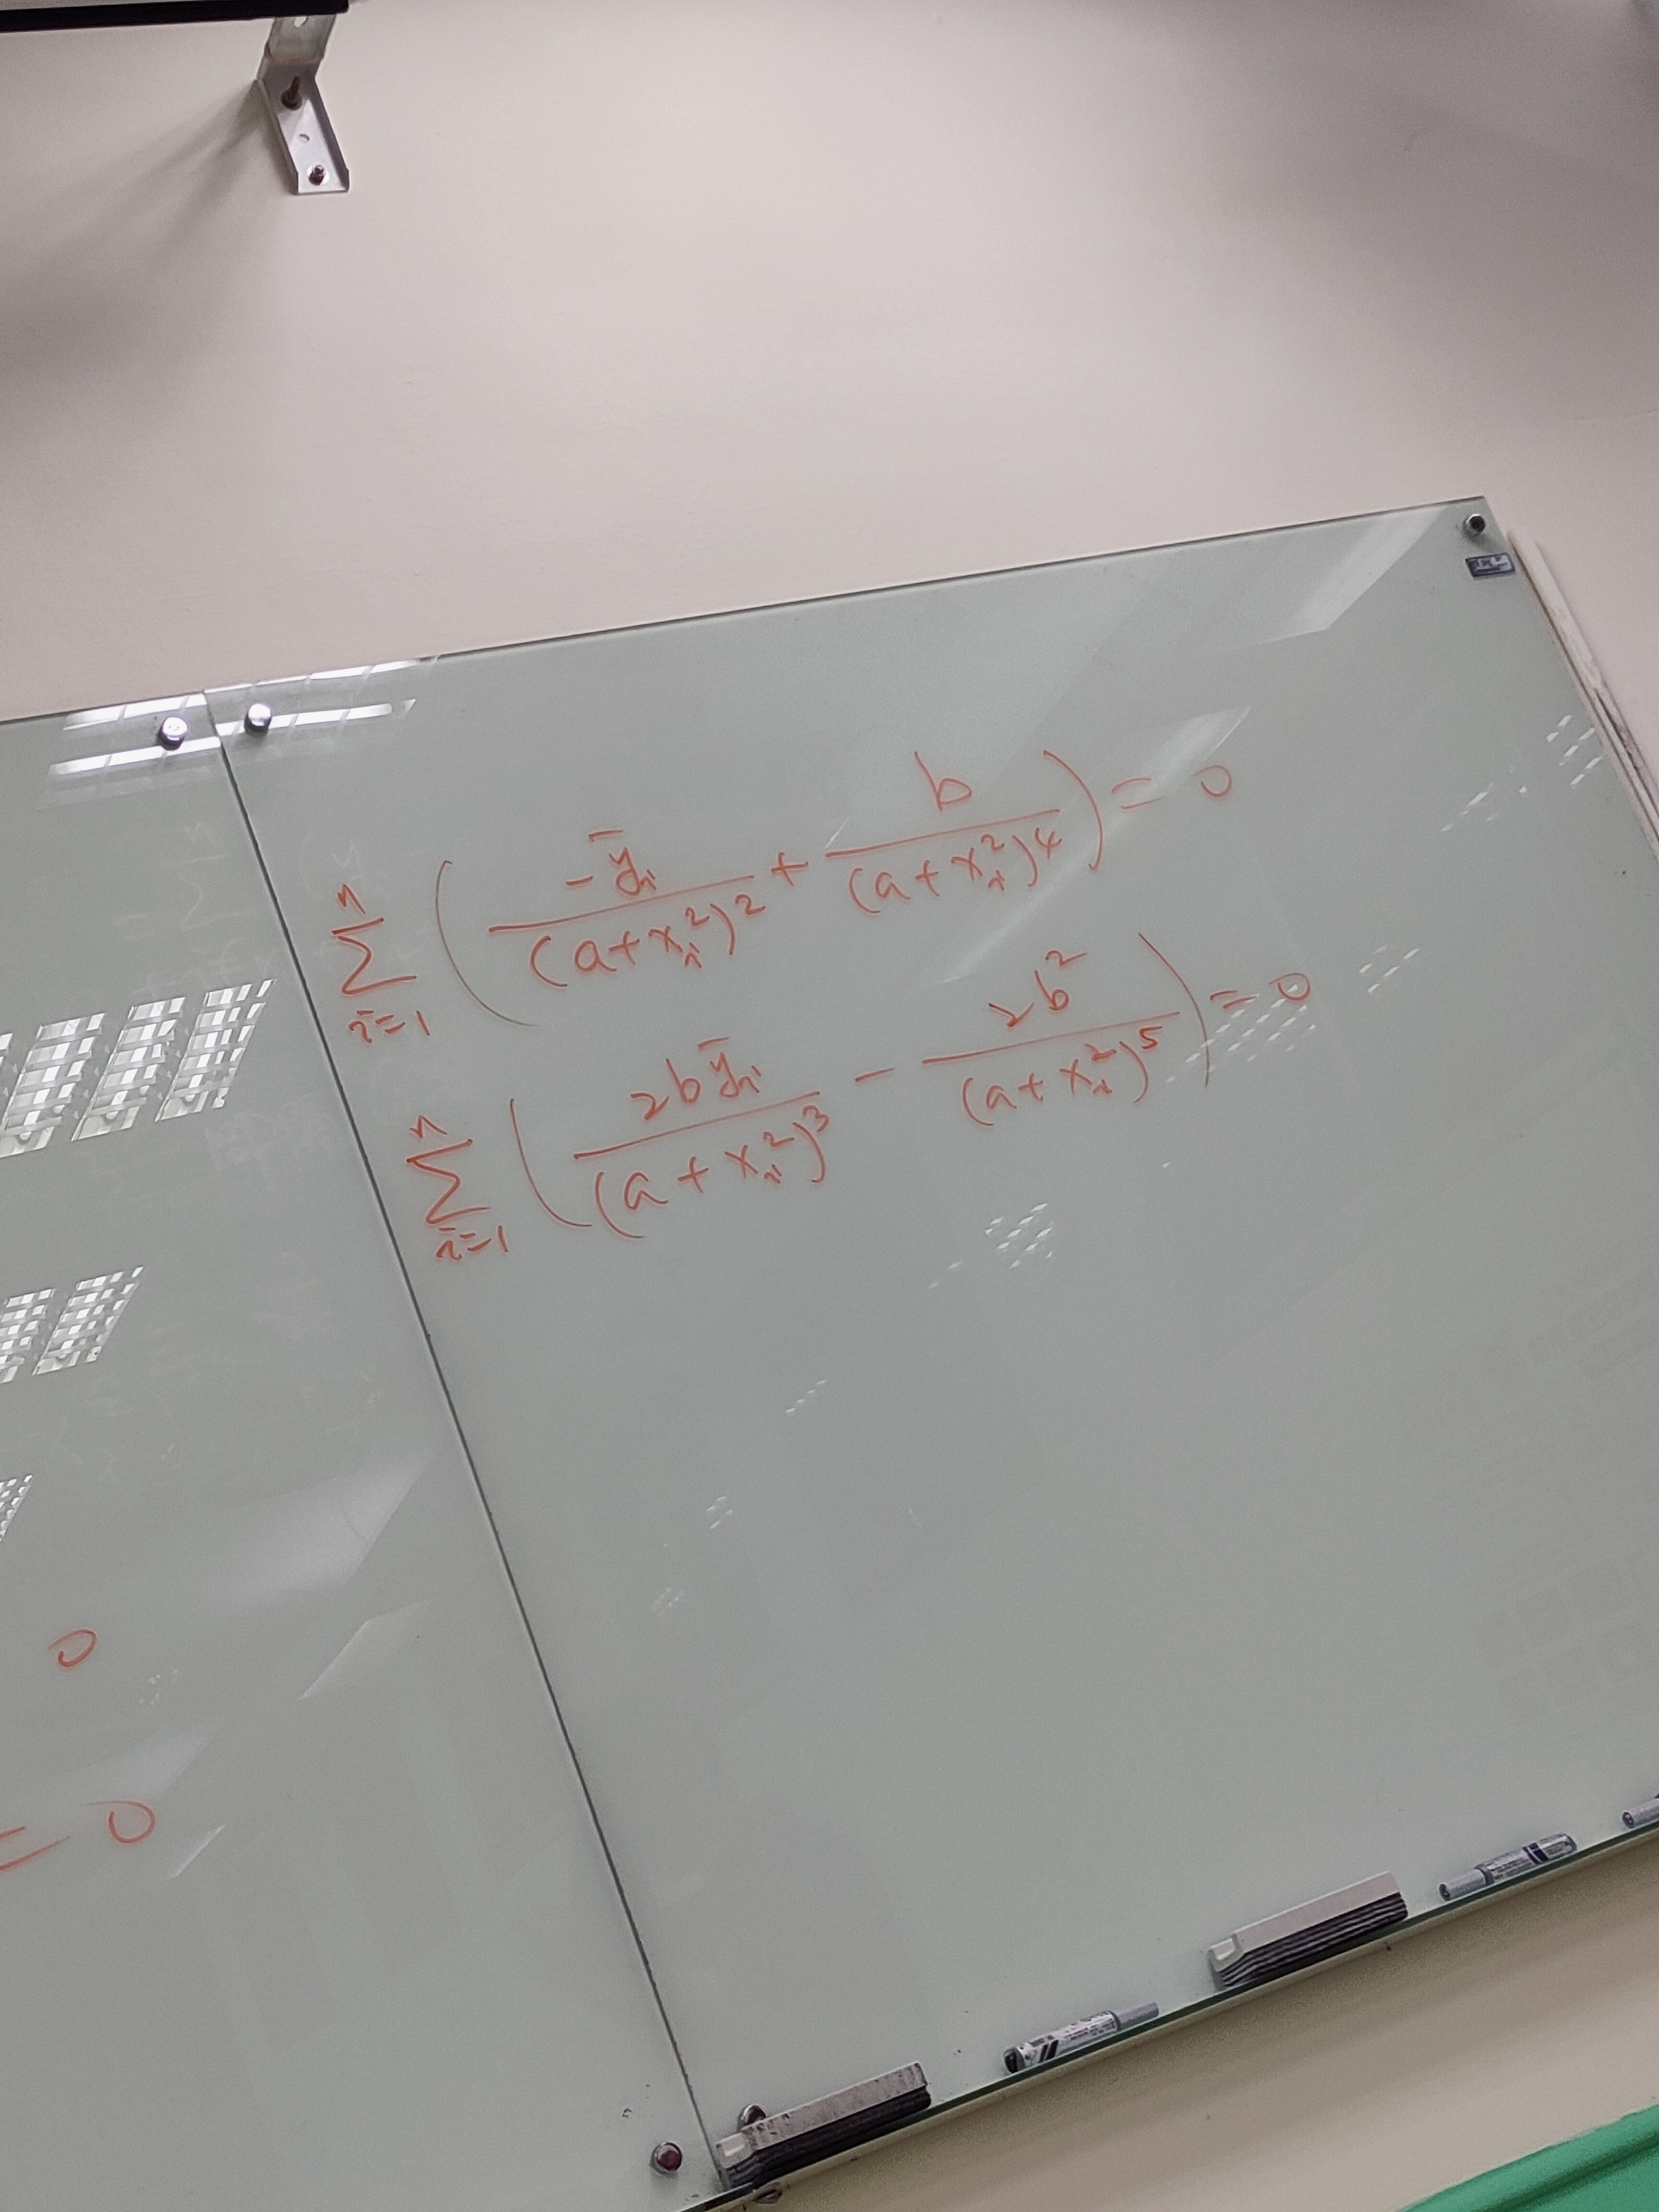 \sum_{i=1}^{n} \left( \frac{-\bar{y}_i}{(a+x_i^2)^2} + \frac{b}{(a+x_i^2)^4} \right) = 0
\sum_{i=1}^{n} \left( \frac{2b\bar{y}_i}{(a+x_i^2)^3} - \frac{2b^2}{(a+x_i^2)^5} \right) = 0
0
= 0